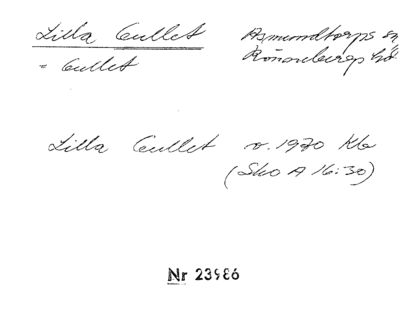 Lilla Gullet Asmundtorps sn
= Gullet Rönnebergs hd
Lilla Gullet v. 1970 Kb
(Sko A 16:30)
Nr 23986